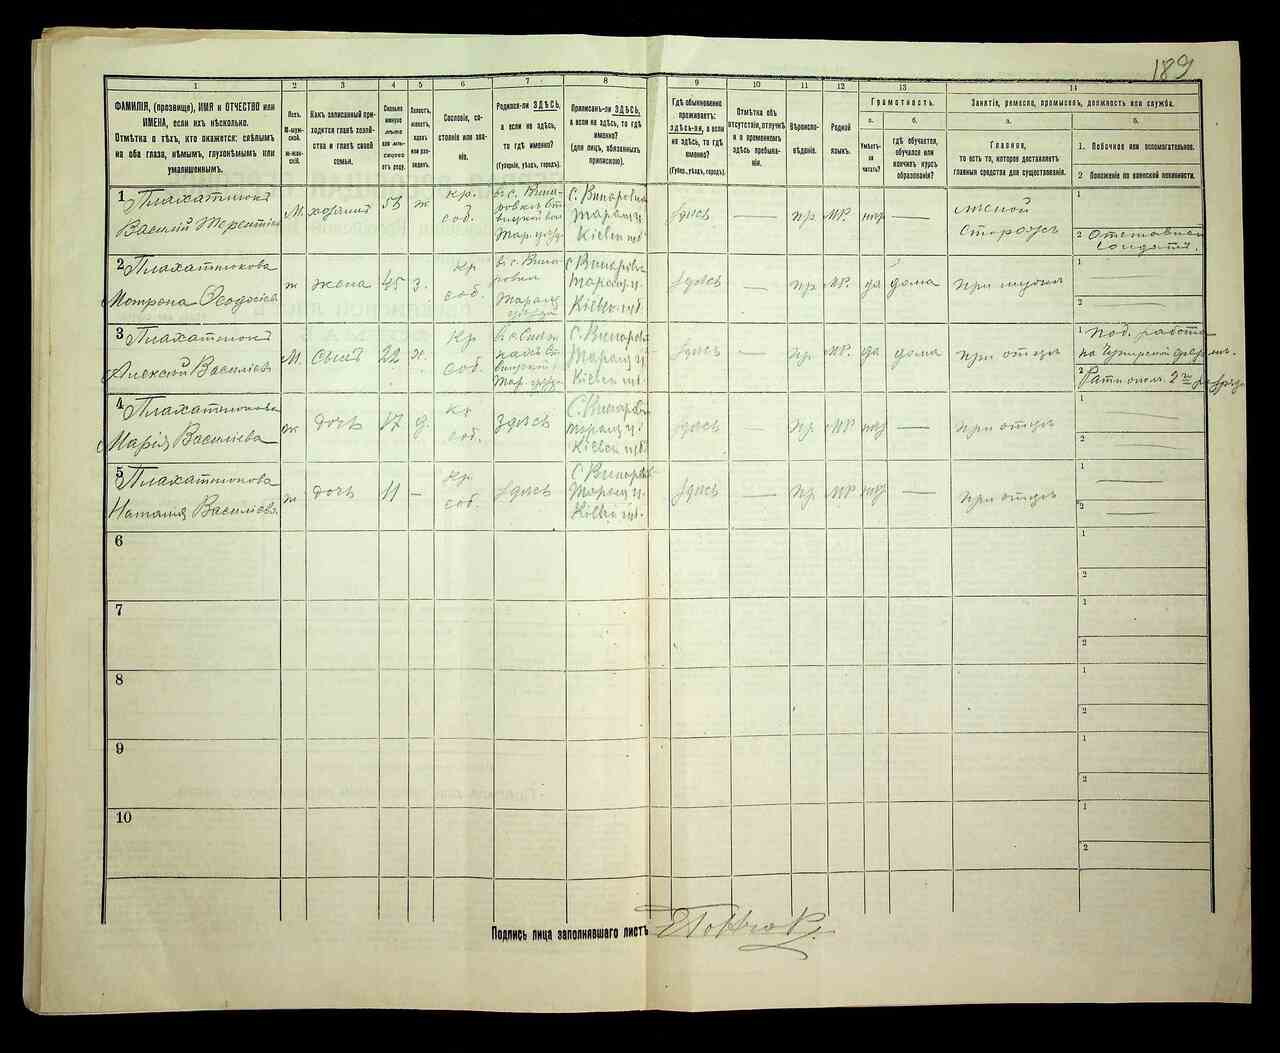 189
1
2
3
4
5
6
7
8
9
10
11
12
13
14
ФАМИЛІЯ, (прозвище), ИМЯ и ОТЧЕСТВО или
ИМЕНА, если ихъ нѣсколько.
Отмѣтка о тѣхъ, кто окажется: слѣпымъ
на оба глаза, нѣмымъ, глухонѣмымъ или
умалишеннымъ.
Полъ.
М-муж-
ской.
Ж-жен-
скій.
Какъ записанный при-
ходится главѣ хозяй-
ства и главѣ своей
семьи.
Сколько
минуло
лѣтъ
или мѣ-
сяцевъ
отъ роду.
Холостъ,
женатъ,
вдовъ
или раз-
веденъ.
Сословіе, со-
стояніе или зва-
ніе.
Родился-ли ЗДѢСЬ,
а если не здѣсь,
то гдѣ именно?
(Губернія, уѣздъ, городъ).
Приписанъ-ли ЗДѢСЬ,
а если не здѣсь, то гдѣ
именно?
(для лицъ, обязанныхъ
припискою).
Гдѣ обыкновенно
проживаетъ:
здѣсь-ли, а если
не здѣсь, то гдѣ
именно?
(Губер., уѣздъ, городъ).
Отмѣтка объ
отсутствіи, отлучкѣ
и о временномъ
здѣсь пребыва-
ніи.
Вѣроиспо-
вѣданіе.
Родной
языкъ.
Грамотность.
а.
б.
Умѣетъ-
ли
читать?
гдѣ обучается,
обучался или
кончилъ курсъ
образованія?
Занятіе, ремесло, промыселъ, должность или служба.
а.
б.
Главное,
то есть то, которое доставляетъ
главныя средства для существованія.
1. Побочное или вспомогательное.
2 Положеніе по воинской повинности.
1 Плахатнюкъ
Василій Терентіев
М. хозяинъ 53 ж Кр. соб.
С. Винаровка
Таращ. у.
Кіевск. губ.
здѣсь — пр МР. нѣтъ —
лѣсной
сторожъ
1
2 Отставной
солдатъ.
2 Плахатнюкова
Мотрона Ѳеодосіева
ж жена 45 з. Кр соб.
С. Винаровка
Таращ. у.
Кіевск. губ.
здѣсь — пр МР. да дома при мужѣ
1
2
3 Плахатнюкъ
Алексѣй Василіев
М. сынъ 22 х. Кр соб.
С. Винаровка
Таращ. у.
Кіевск. губ.
здѣсь — пр МР. да дома при отцѣ
1 Под. работа
2 Рат. опол. 2го разряда
4 Плахатнюкова
Марія Василіева
ж дочь 17 д. Кр соб. Здѣсь
С. Винаровка
Таращ. у.
Кіевск. губ.
здѣсь — пр МР нѣтъ — при отцѣ
1
2
5 Плахатнюкова
Наталія Василіева
ж дочь 11 — Кр. соб. здѣсь
С. Винаровка
Таращ. у.
Кіевск. губ.
здѣсь — пр МР нѣтъ — при отцѣ
1
2
6
1
2
7
1
2
8
1
2
9
1
2
10
1
2
Подпись лица заполнявшаго листъ